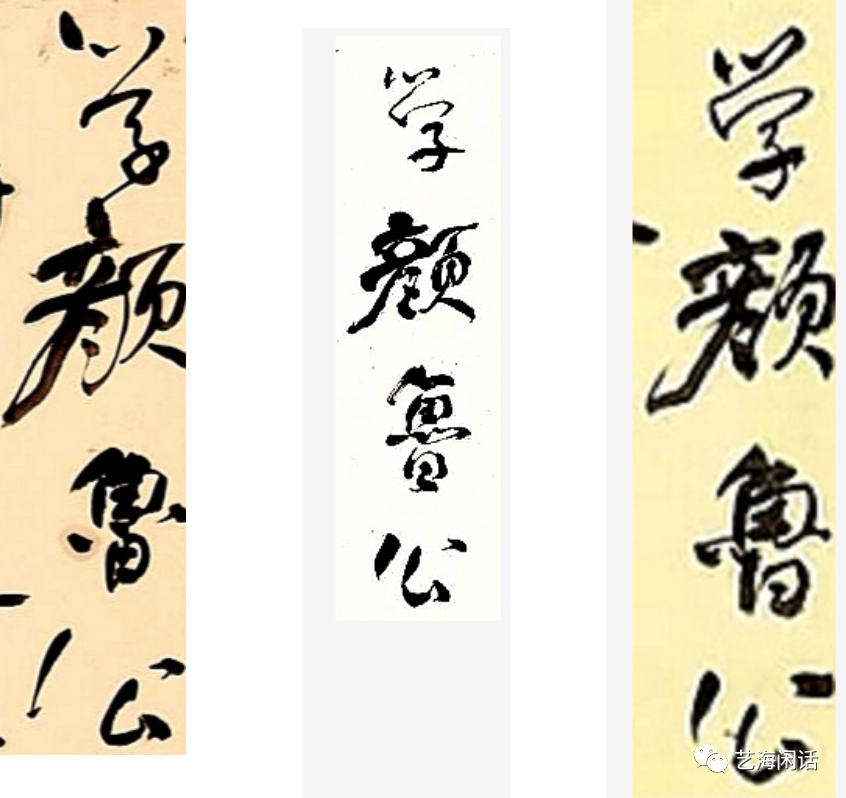 学颜鲁公
学颜鲁公
学颜鲁公
艺海闲话